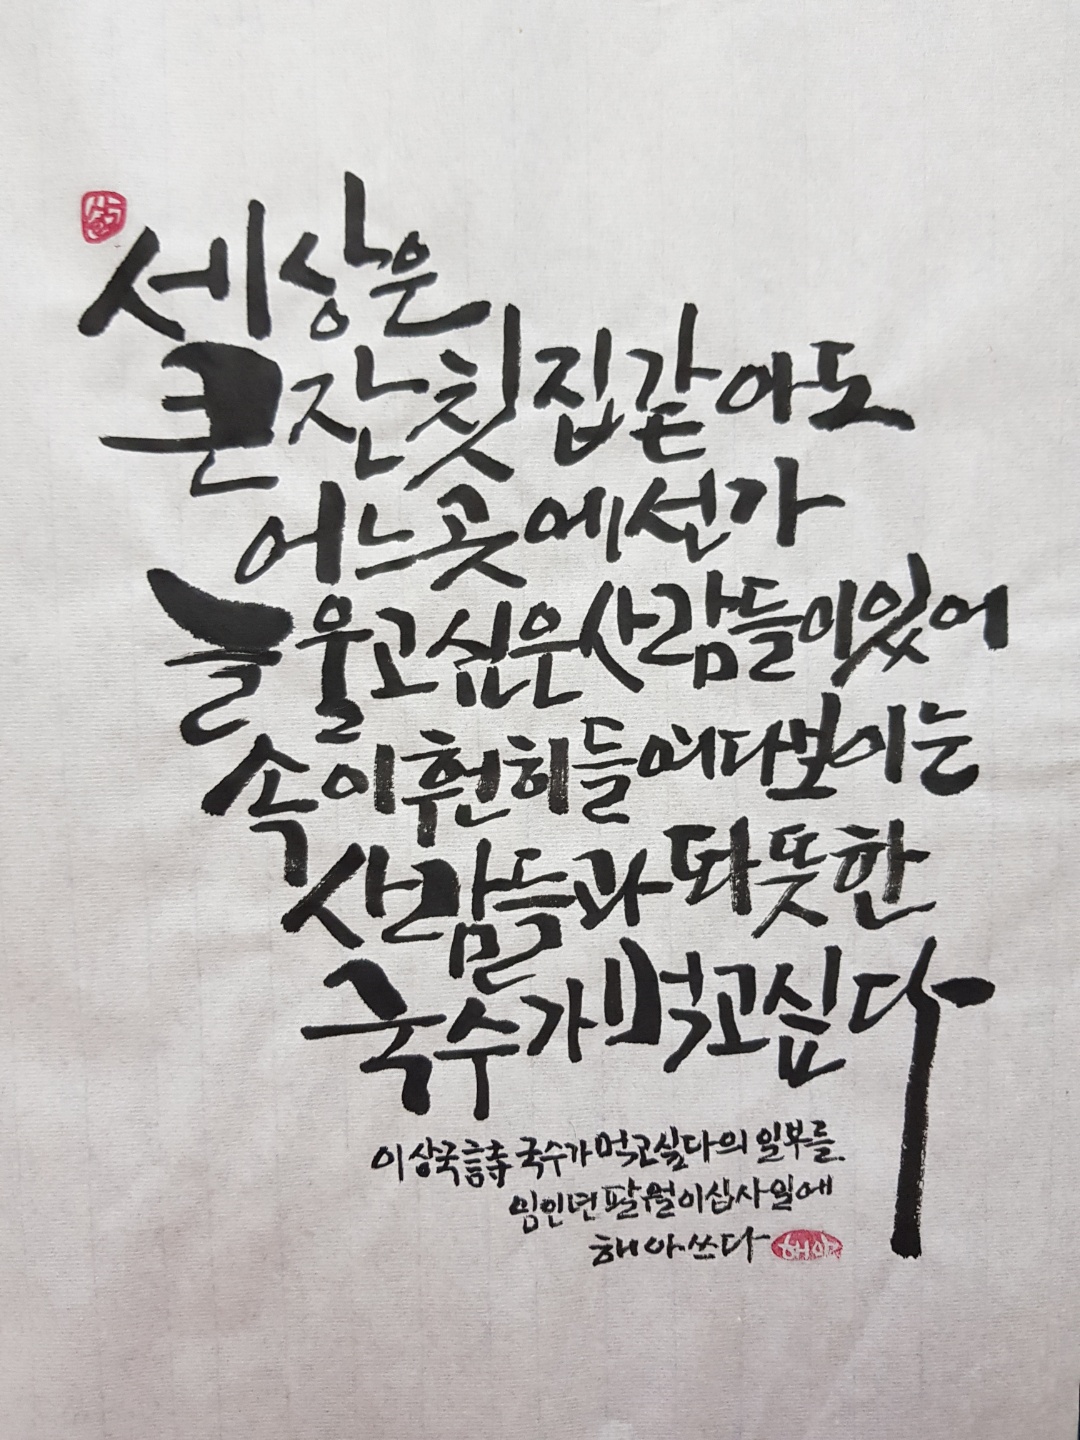 세상은
큰 잔칫집 같아도
어느 곳에선가
늘 울고 싶은 사람들이 있어
속이 훤히 들여다보이는
사람들과 따뜻한
국수가 먹고 싶다
이상국 詩 국수가 먹고싶다의 일부를
임인년 팔월 이십사일에
해아 쓰다
해아